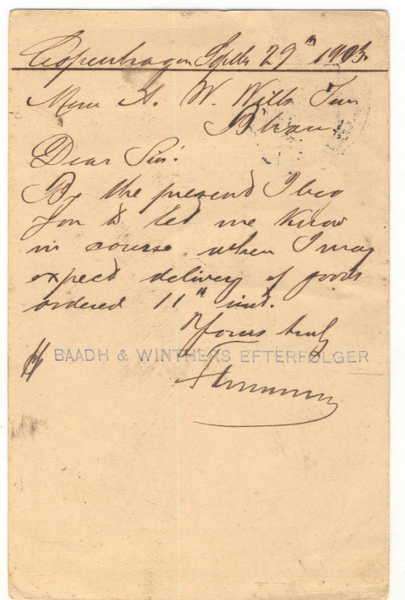 Copenhagen Septbr 29th 1903.
Messrs H. W. Witts
Dear Sir!
By the present I beg
you to let me know
in course when I may
expect delivery of goods
ordered 11th inst.
Yours truly
BAADH & WINTHERS EFTERFØLGER